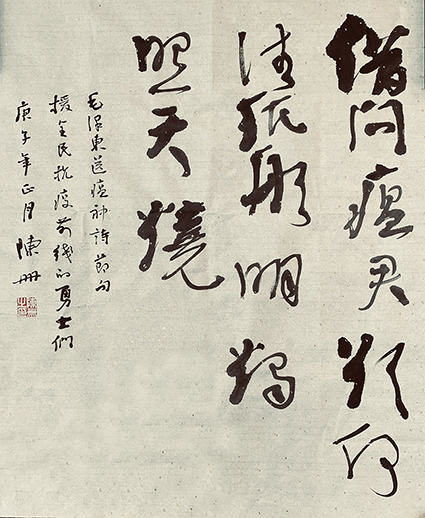 借問瘟君欲何
往紙船明燭
照天燒
毛澤東送瘟神詩節句
援全民抗疫前綫的勇士們
庚子年正月 陳冊